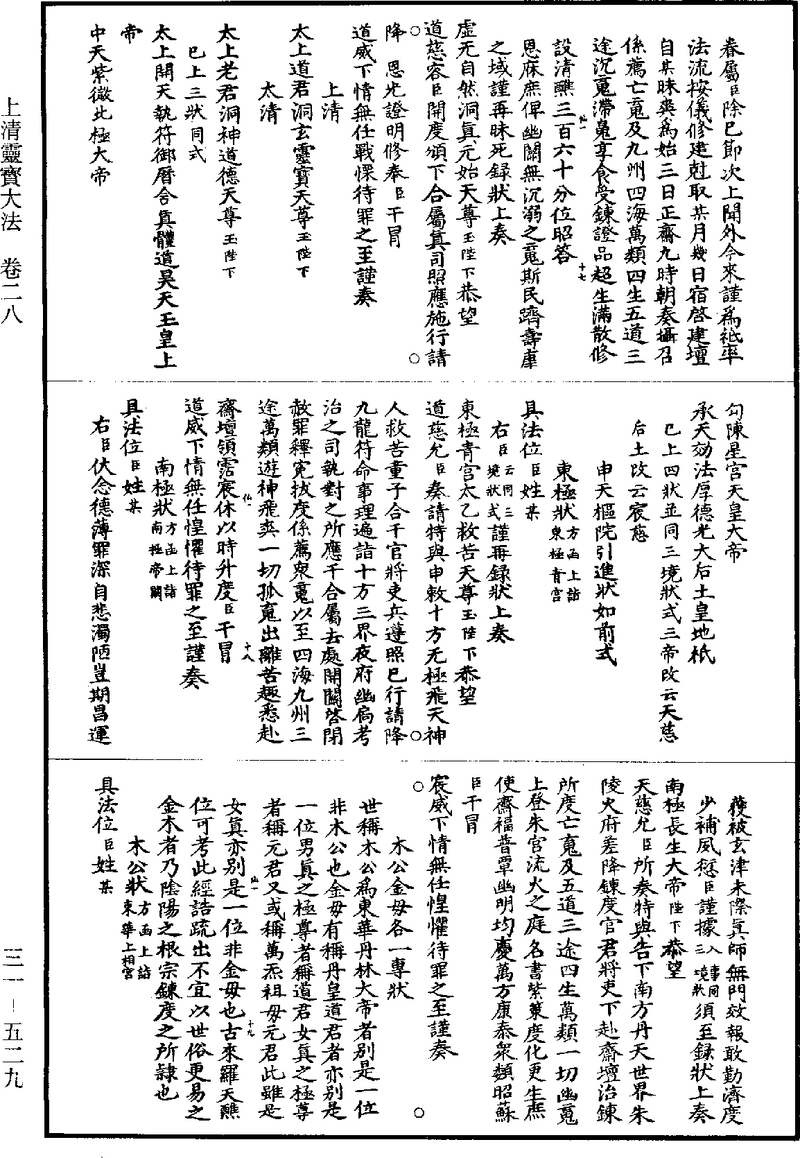 眷屬臣除已節次上聞外今來謹爲祗率
法流按儀修建尅取某月幾日宿啓建壇
自其昧爽爲始三日正齋九時朝奏攝召
係薦亡䰟及九州四海萬類四生五道三
途沉䰟滯魄享食受鍊證品超生滿散修
設清醮三百六十分位昭答
恩庥庶俾幽關無沉溺之䰟斯民躋壽康
之域謹再昧死録狀上奏
虛无自然洞眞元始天尊玉陛下恭望
道慈容臣開度頒下合屬眞司照應施行請
降 恩光證明修奉臣干冒
道威下情無任戰慄待罪之至謹奏
上清
太上道君洞玄靈寶天尊玉陛下
太清
太上老君洞神道德天尊玉陛下
已上三狀同式
太上開天執符御曆含眞體道昊天玉皇上
帝
中天紫微北極大帝
勾陳星宮天皇大帝
承天効法厚德光大后土皇地祇
已上四狀並同三境狀式三帝改云天慈
后土改云宸慈
申天樞院引進狀如前式
東極狀方函上詣東極青宮
具法位臣姓某
右臣云同三境狀式謹再録狀上奏
東極青宮太乙救苦天尊玉陛下恭望
道慈允臣奏請特與申敕十方无極飛天神
人救苦童子合干官將吏兵遵照已行請降
九龍符命事理遍詣十方三界夜府幽扃考
治之司執對之所應干合屬去處開關啓閉
赦罪釋寃拔度係薦衆䰟以至四海九州三
途萬類遊神飛爽一切孤䰟出離苦趣悉赴
齋壇領霑宸休以時升度臣干冒
道威下情無任惶懼待罪之至謹奏
南極狀方函上詣南極帝闕
具法位臣姓某
右臣伏念德薄罪深自悲濁陋豈期昌運
獲被玄津未際眞師無門效報敢勤濟度
少補威愆臣謹據入事同三境狀須至録狀上奏
南極長生大帝陛下恭望
天慈允臣所奏特與告下南方丹天世界朱
陵火府差降鍊度官君將吏下赴齋壇治鍊
所度亡䰟及五道三途四生萬類一切幽䰟
上登朱宮流火之庭名書紫菓度化更生庶
使齋福普覃幽明均慶萬方康泰衆類昭蘇
臣干冒
宸威下情無任惶懼待罪之至謹奏
木公金母各一專狀
世稱木公爲東華丹林大帝者別是一位
非木公也金母有稱丹皇道君者亦別是
一位男眞之極尊者稱道君女眞之極尊
者稱元君又或稱萬炁祖母元君此雖是
女眞亦別是一位非金母也古來羅天醮
位可考此經誥疏出不宜以世俗更易之
金木者乃陰陽之根宗鍊度之所隷也
木公狀方函上詣東華上相宮
具法位臣姓某
上清靈寶大法 卷二八
三一－五二九